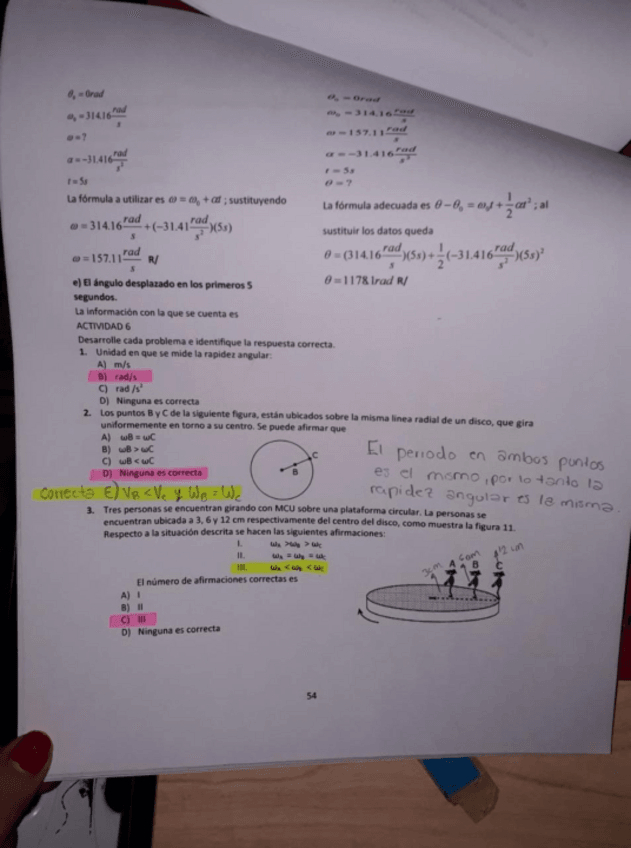 θ₀ = 0rad
ω₀ = 314.16 rad/s
ω = ?
α = -31.416 rad/s²
t = 5s
La fórmula a utilizar es ω = ω₀ + αt ; sustituyendo
ω = 314.16 rad/s + (-31.41 rad/s²)(5s)
ω = 157.11 rad/s R/
e) El ángulo desplazado en los primeros 5
segundos.
La información con la que se cuenta es
θ₀ = 0rad
ω₀ = 314.16 rad/s
ω = 157.11 rad/s
α = -31.416 rad/s²
t = 5s
θ = ?
La fórmula adecuada es θ - θ₀ = ω₀t + 1/2 αt² ; al
sustituir los datos queda
θ = (314.16 rad/s)(5s) + 1/2 (-31.416 rad/s²)(5s)²
θ = 1178.1rad R/
ACTIVIDAD 6
Desarrolle cada problema e identifique la respuesta correcta.
1. Unidad en que se mide la rapidez angular:
A) m/s
B) rad/s
C) rad /s²
D) Ninguna es correcta
2. Los puntos B y C de la siguiente figura, están ubicados sobre la misma linea radial de un disco, que gira
uniformemente en torno a su centro. Se puede afirmar que
A) ωB = ωC
B) ωB > ωC
C) ωB < ωC
D) Ninguna es correcta
correcta E) V_B < V_C y W_B = W_C
C
B
El periodo en ambos puntos
es el mismo, por lo tanto la
rapidez angular es la misma.
3. Tres personas se encuentran girando con MCU sobre una plataforma circular. La personas se
encuentran ubicada a 3, 6 y 12 cm respectivamente del centro del disco, como muestra la figura 11.
Respecto a la situación descrita se hacen las siguientes afirmaciones:
I. ωA > ωB > ωC
II. ωA = ωB = ωC
III. ωA < ωB < ωC
3cm 6cm 12 cm
A B C
El número de afirmaciones correctas es
A) I
B) II
C) III
D) Ninguna es correcta
54